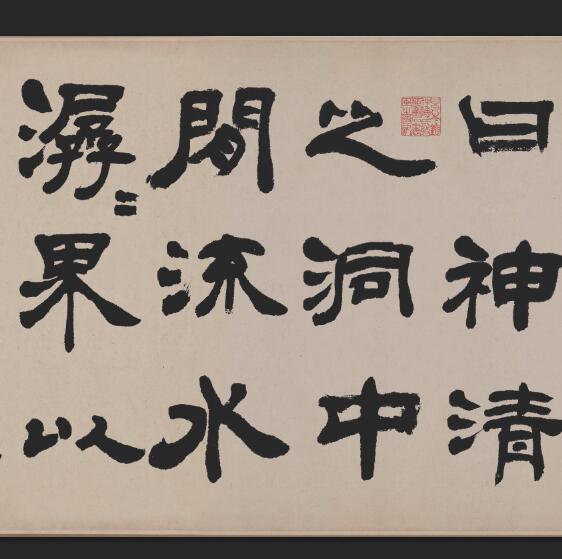 曰神清
之洞中
閒流水
潺〻果以